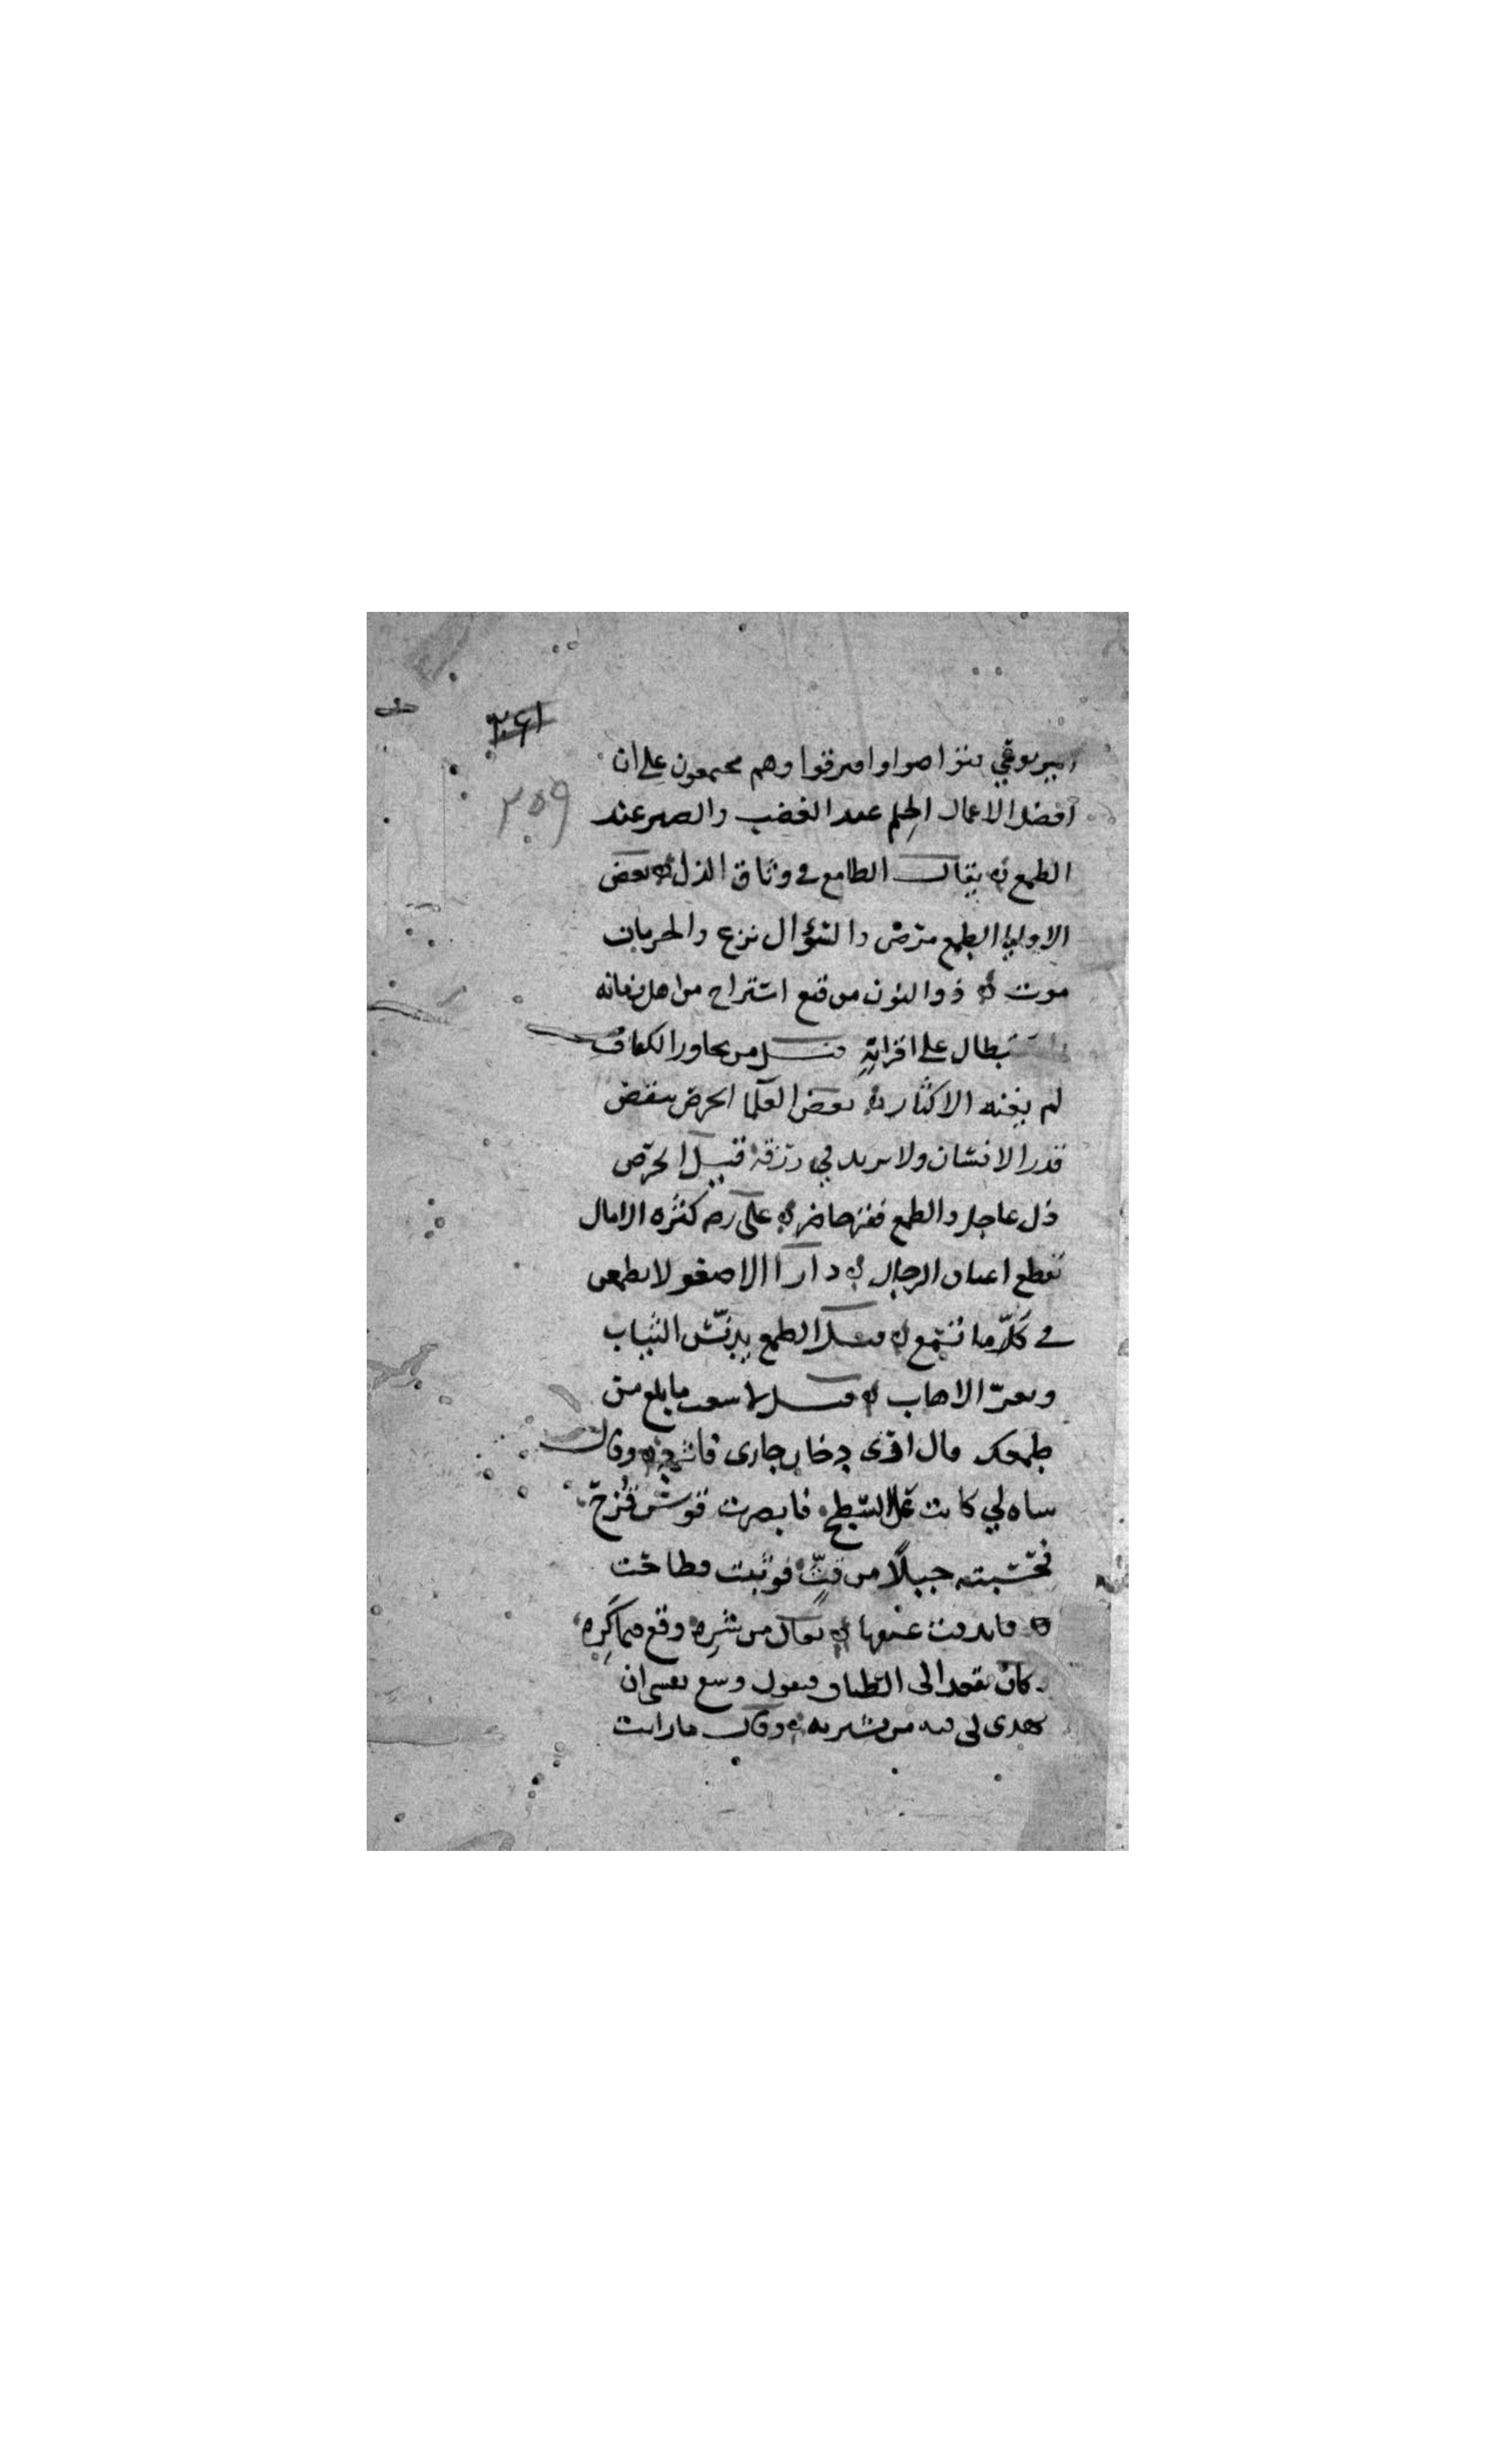 ٢٦١
٢٥٩
فتواصوا وافترقوا وهم مجمعون على ان
افضل الاعمال الحلم عند الغضب والصبر عند
الطمع يقال الطامع في وثاق الذل بعض
الاوليا الطمع مرض والسؤال نزع والحرمان
موت ذو النون من قنع استراح من اهل زمانه
واستطال على اقرانه قيل من جاور الكفاف
لم يغنه الاكثار بعض العلما الحرص ينقص
قدر الانسان ولا يزيد في رزقه قيل الحرص
ذل عاجل والطمع فقر حاضر على رضه كثرة الامال
تقطع اعناق الرجال دارا الاصغر لا تطمعن
في كل ما تسمع قيل الطمع يدنس الثياب
ويعر الاهاب قيل لاشعب ما بلغ من
طمعك قال ارى دخان جارى فاثرد وقال
شاه لي كانت على السطح فابصرت قوس قزح
فحسبته حبلا من قت فوثبت فطاحت
فاندقت عنقها يقال من شره وقع فيما كره
وكان يقعد الى الطباق فيقول وسع نفسي ان
يهدى لي فيه من يشتريه وقال ما رايت